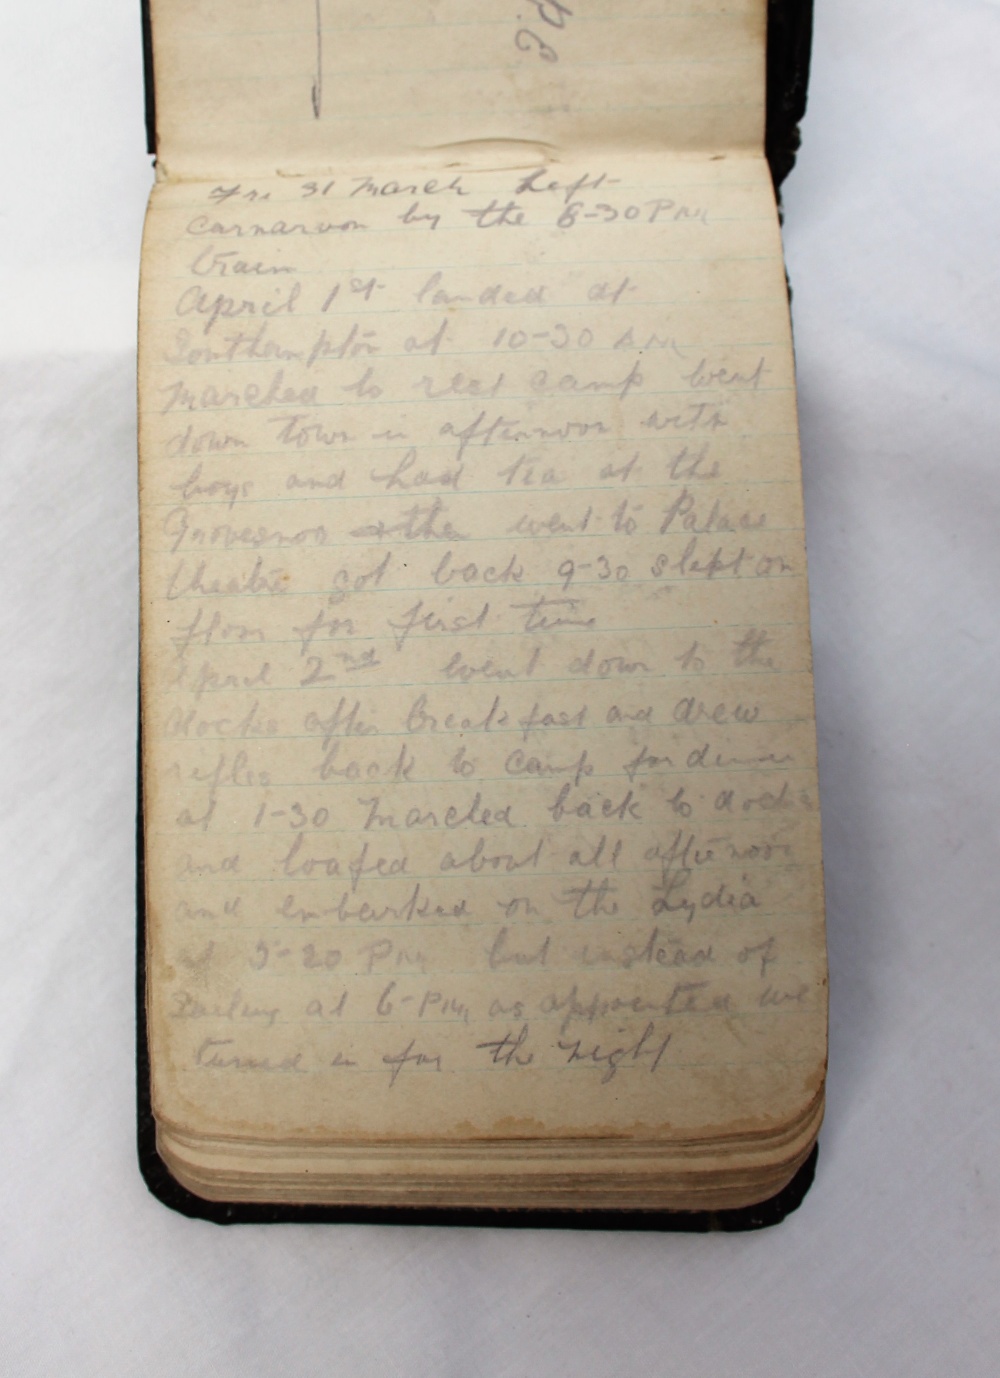 Fri 31 March Left
Carnarvon by the 8-30 PM
train
April 1st landed at
Southampton at 10-30 AM
Marched to rest camp went
down town in afternoon with
boys and had tea at the
Grovesnor & then went to Palace
theatre got back 9-30 slept on
floor for first time
April 2nd went down to the
docks after breakfast and drew
rifles back to camp for dinner
at 1-30 Marched back to docks
and loafed about all afternoon
and embarked on the Lydia
at 5-20 PM but instead of
Sailing at 6-PM as appointed we
turned in for the night